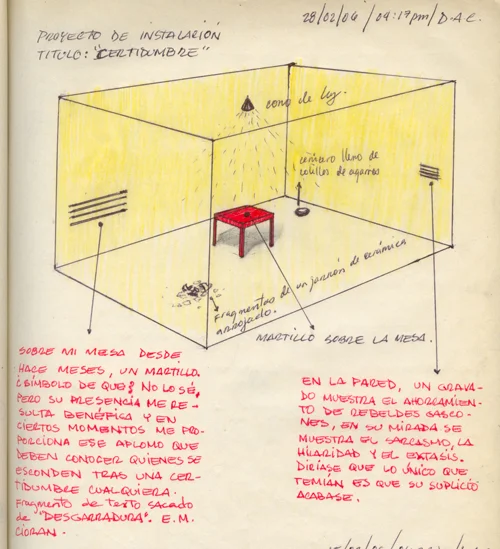 28/02/06 / 09:17pm / D.A.C.
PROYECTO DE INSTALACIÓN
TITULO: "CERTIDUMBRE"
cono de luz.
cenicero lleno de
colillas de cigarros
Fragmentos de un jarrón de cerámica
arrojado.
MARTILLO SOBRE LA MESA.
SOBRE MI MESA DESDE
HACE MESES, UN MARTILLO.
¿SÍMBOLO DE QUE? NO LO SÉ,
PERO SU PRESENCIA ME RE-
SULTA BENÉFICA Y EN
CIERTOS MOMENTOS ME PRO-
PORCIONA ESE APLOMO QUE
DEBEN CONOCER QUIENES SE
ESCONDEN TRAS UNA CER-
TIDUMBRE CUALQUIERA.
Fragmento de texto sacado
de "DESGARRADURA". E.M.
CIORAN.
EN LA PARED, UN GRAVA-
DO MUESTRA EL AHORCAMIEN-
TO DE REBELDES GASCO-
NES, EN SU MIRADA SE
MUESTRA EL SARCASMO, LA
HILARIDAD Y EL EXTASIS.
DIRÍASE QUE LO ÚNICO QUE
TEMÍAN ES QUE SU SUPLICIO
ACABASE.